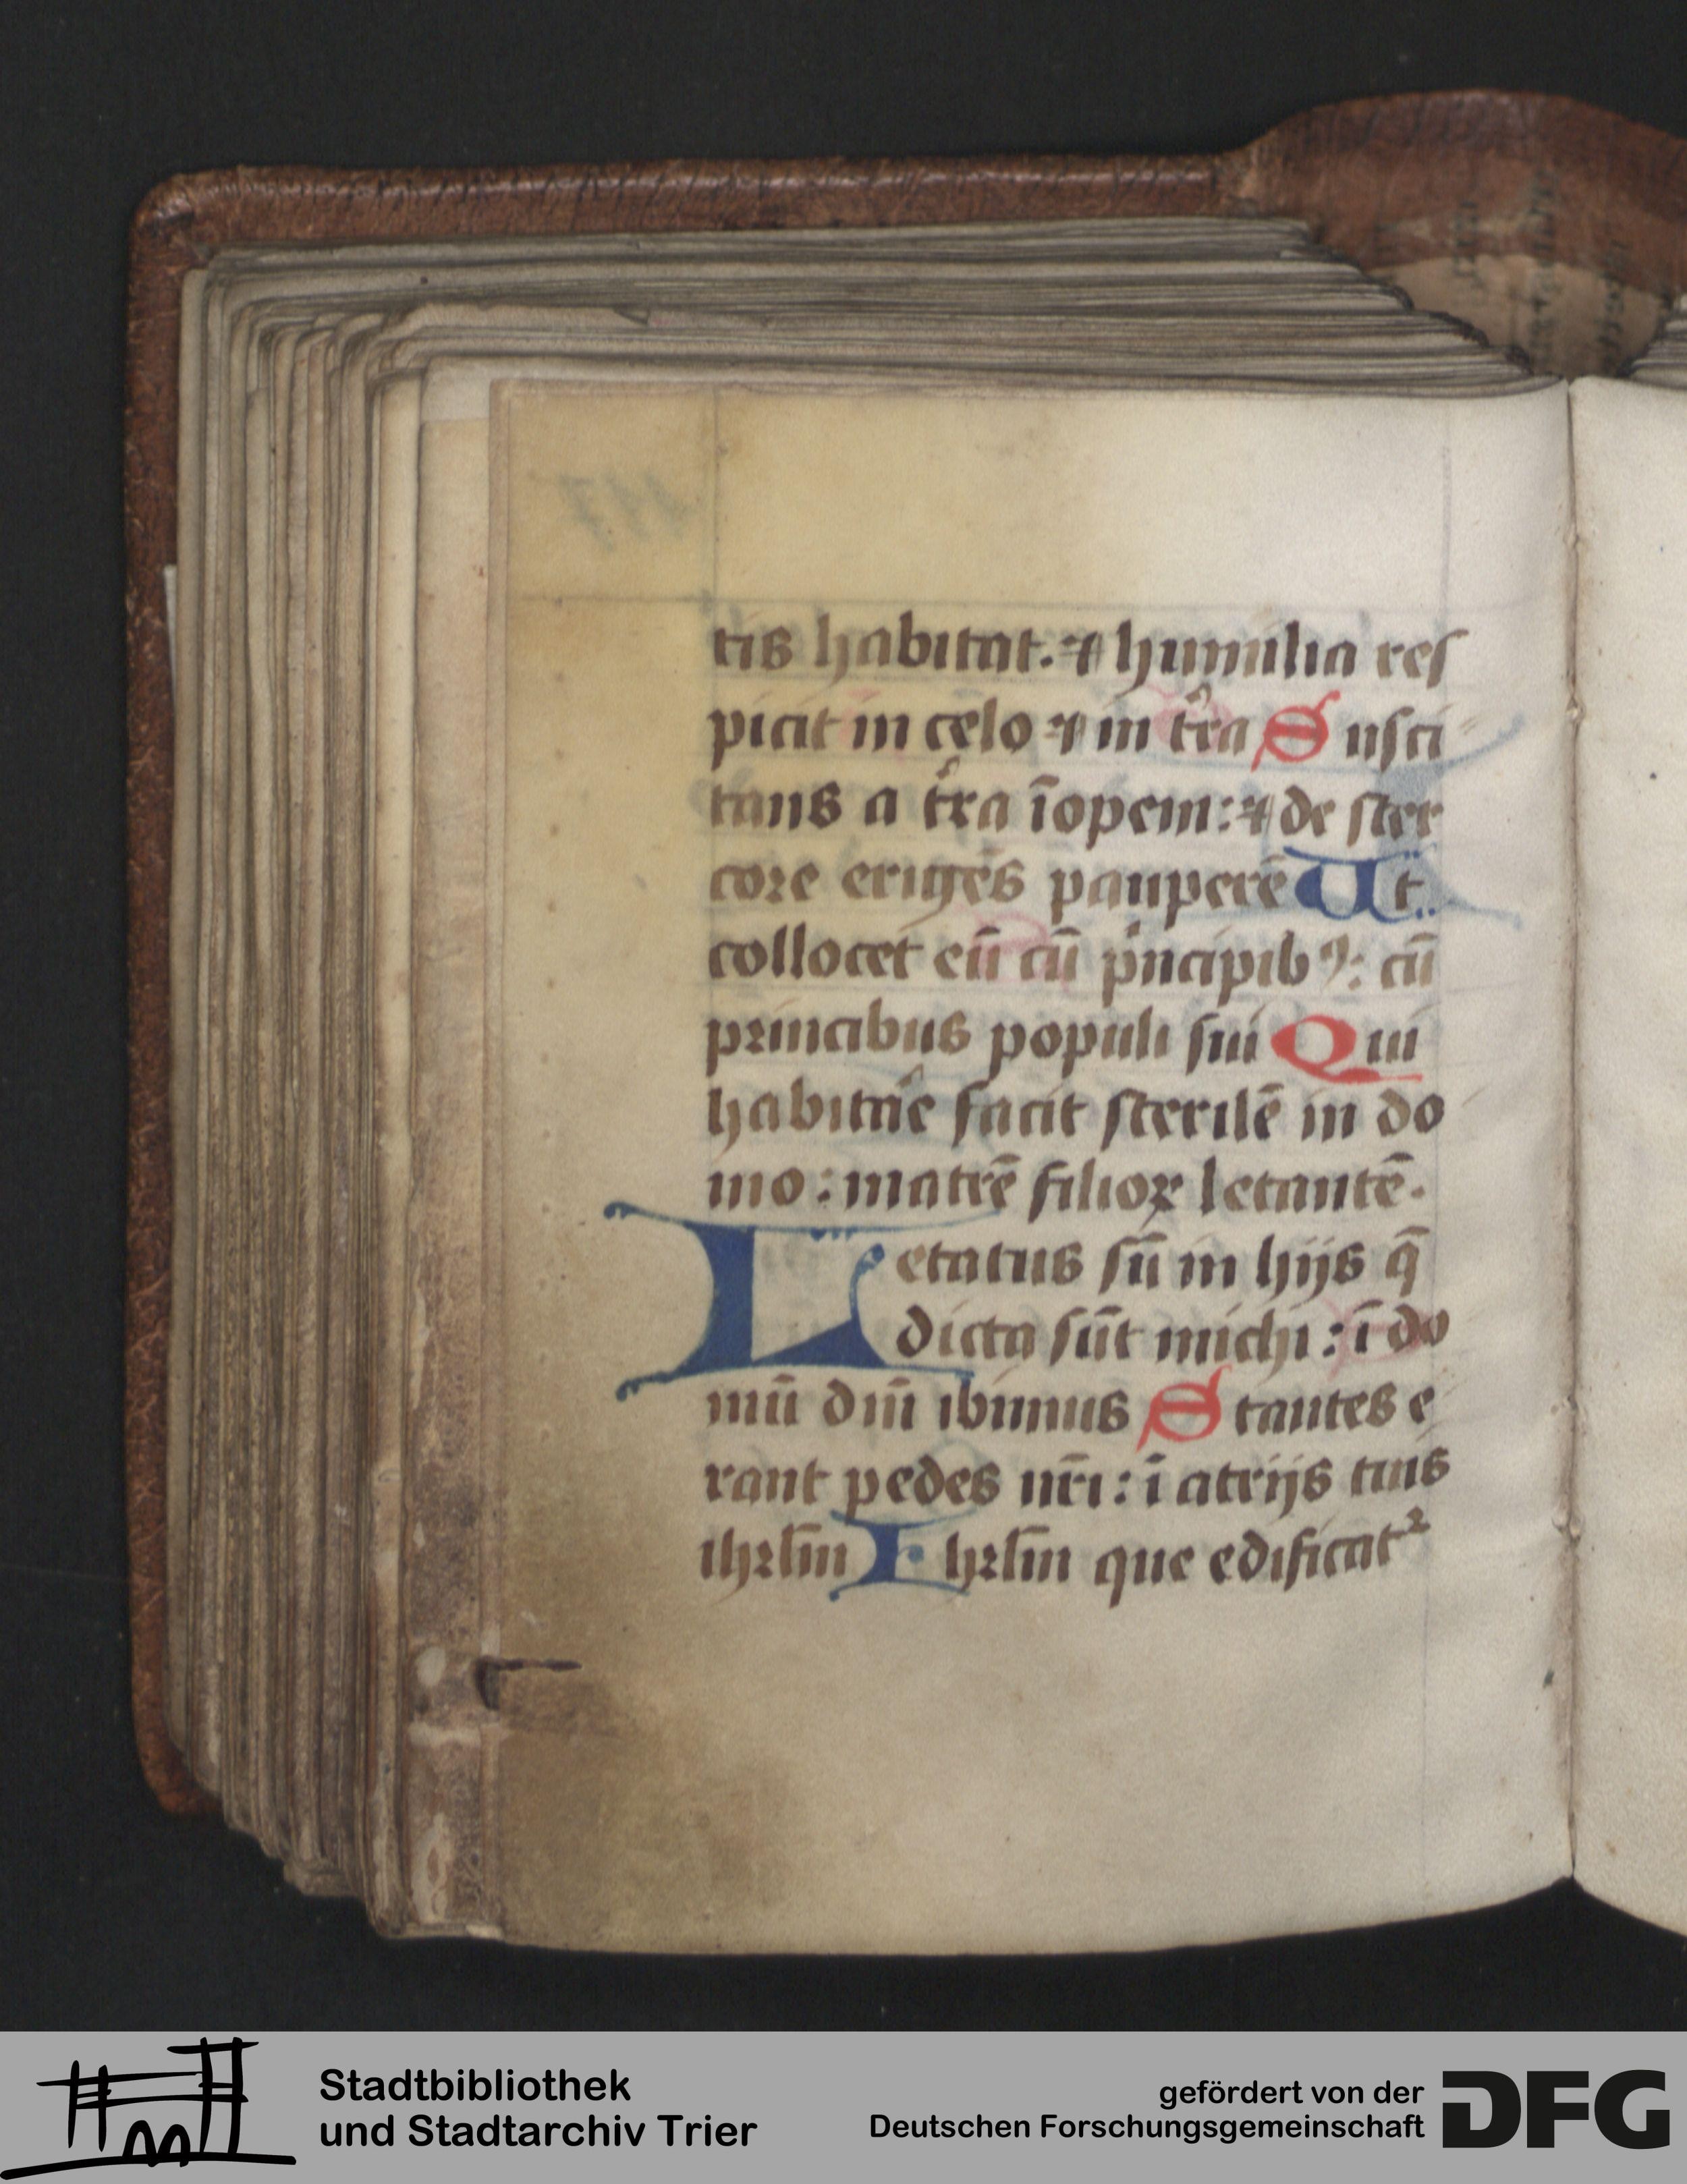 tis habitat. ⁊ humilia res
picit in celo ⁊ in tr̄a Susci
tans a tr̄a īopem: ⁊ de ster
core erigēs pauperē Ut
collocet eū cū pͥncipibꝰ: cū
princibus populi sui Qui
habitar̄e facit sterilē in do
mo: matrē filioꝝ letantē.
Letatus sū in hijs q̄
dicta sūt michi: ī do
mū dn̄i ibimus Stantes e
rant pedes nr̄i: ī atrijs tuis
ihrl̄m Ihrl̄m que edificatᷣ
117
Stadtbibliothek
und Stadtarchiv Trier
gefördert von der
Deutschen Forschungsgemeinschaft
DFG